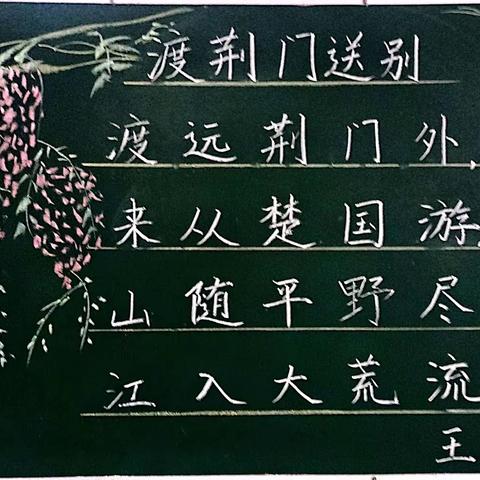 渡荆门送别
渡远荆门外
来从楚国游
山随平野尽
江入大荒流
王